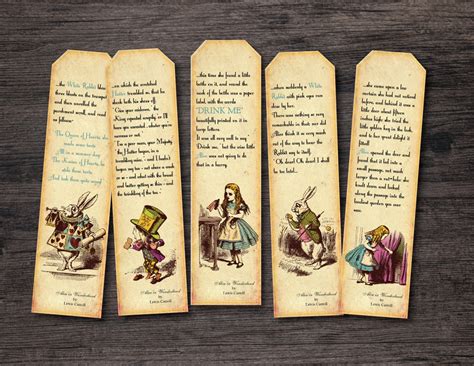 ...the White Rabbit blew
three blasts on the trumpet
and then unrolled the
parchment scroll, and read
as follows:
The Queen of Hearts, she
made some tarts
All on a summer's day
The Knave of Hearts he
stole those tarts
And took them quite away!
Alice in Wonderland
by
Lewis Carroll
...on which the wretched
Hatter trembled so, that he
shook both his shoes off.
'Give your evidence,' the
King repeated angrily, 'or I'll
have you executed, whether
you're nervous or not.'
'I'm a poor man, your Majesty,'
the Hatter began, in a trembling
voice, - and I hadn't
begun my tea - not above a
week or so - and what with the
butter getting so thin - and
the twinkling of the tea -
Alice in Wonderland
by
Lewis Carroll
...this time she found a little
bottle on it, and round the
neck of the bottle was a paper
label, with the words
'DRINK ME'
beautifully printed on it in
large letters.
It was all very well to say '
Drink me,' but the wise little
Alice was not going to do
that in a hurry
Alice in Wonderland
by
Lewis Carroll
...when suddenly a White
Rabbit with pink eyes ran
close by her.
There was nothing so very
remarkable in that; nor did
Alice think it so very much
out of the way to hear the
Rabbit say to itself,
'Oh dear! Oh dear! I shall
be too late...
Alice in Wonderland
by
Lewis Carroll
...she came upon a low
curtain she had not noticed
before, and behind it was a
little door about fifteen
inches high: she tried the
little golden key in the lock,
and to her great delight it
fitted!
Alice opened the door and
found that it led into a small
passage, not much larger than a
rat-hole: she knelt down and
looked along the passage into the
loveliest garden you ever
saw.
Alice in Wonderland
by
Lewis Carroll